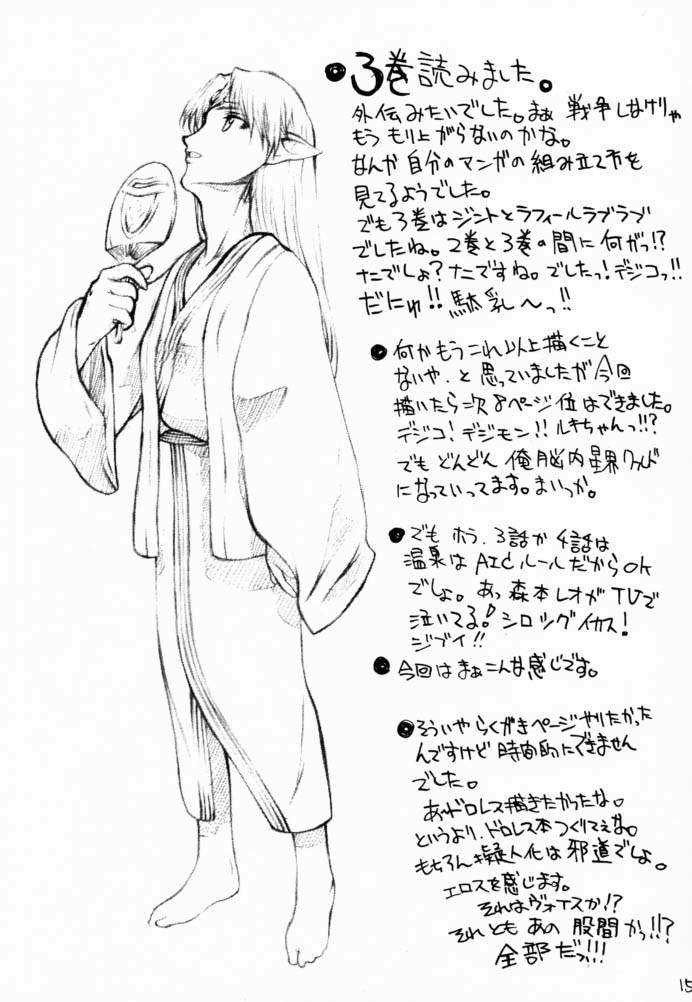 ●3巻読みました。
外伝みたいでした。まぁ 戦争しなけりゃ
もう もり上がらないのかな。
なんか 自分のマンガの組み立て方を
見てるようでした。
でも3巻はジントとラフィールラブラブ
でしたね。2巻と3巻の間に何がっ!?
なでしょ?なですね。でしたっ!デジコっ!!
だにゅ!!駄乳～っ!!
●何かもうこれ以上描くこと
ないや.と思っていましたが今回
描いたら次8ページ位はできました。
デジコ!デジモン!!ルキちゃんっ!!?
でもどんどん俺脳内星界ワールド
になっていってます。まいっか。
●でもホラ.3話か4話は
温泉はAICルールだからOK
でしょ。あっ森本レオがTVで
泣いてる!シロツグイカス!
ジブイ!!
●今回はまぁこんな感じです。
●そういやらくがきページやりたかった
んですけど時間的にできません
でした。
あードロレス描きたかったな。
というより.ドロレス本つくりてぇな。
もちろん擬人化は邪道でしょ。
エロスを感じます。
それはヴォイスか!?
それともあの股間かっ!!?
全部だっ!!!
15